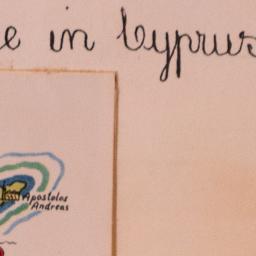 e in Cyprus
Apostolos
Andreas